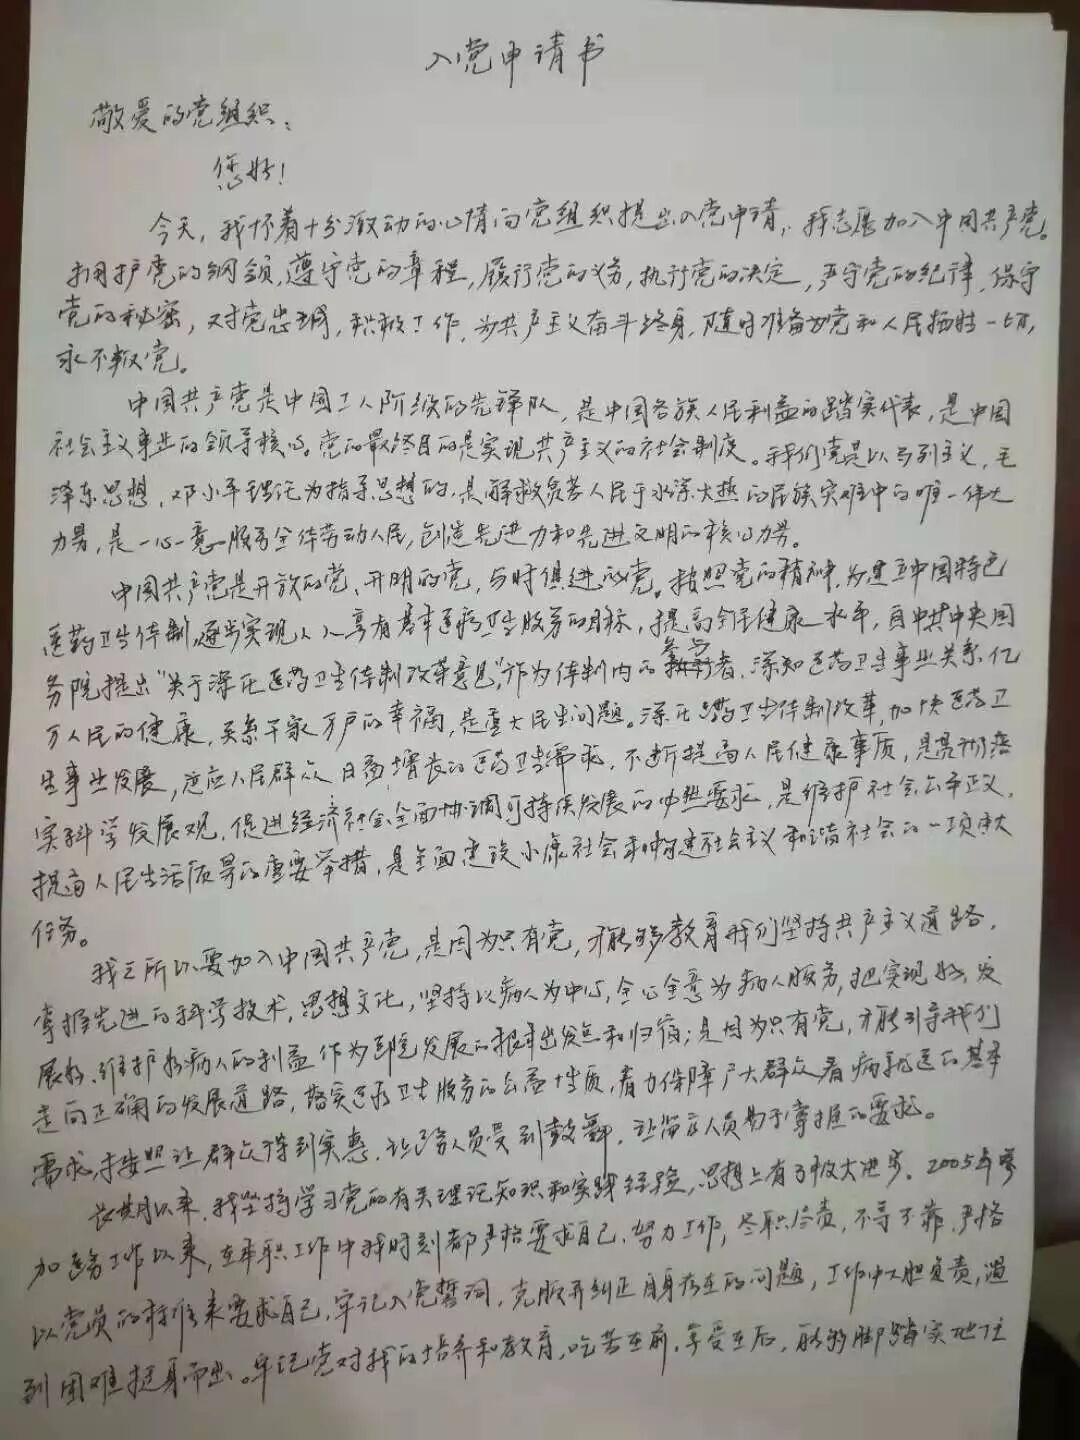 入党申请书
敬爱的党组织：
您好！
今天，我怀着十分激动的心情向党组织提出入党申请，我志愿加入中国共产党。
拥护党的纲领，遵守党的章程，履行党的义务，执行党的决定，严守党的纪律，保守
党的秘密，对党忠诚，积极工作，为共产主义奋斗终身，随时准备为党和人民牺牲一切，
永不叛党。
中国共产党是中国工人阶级的先锋队，是中国各族人民利益的踏实代表，是中国
社会主义事业的领导核心。党的最终目的是实现共产主义的社会制度。我们党是以马列主义，毛
泽东思想，邓小平理论为指导思想的，是解救负苦人民于水深火热的民族灾难中的唯一伟大
力量，是一心一意服务全体劳动人民，创造先进力和先进文明的核心力量。
中国共产党是开放的党、开明的党，与时俱进的党。按照党的精神，为建立中国特色
医药卫生体制，逐步实现人人享有基本医疗卫生服务的目标，提高全民健康水平，自中共中央国
务院提出“关于深化医药卫生体制改革意见”，作为体制内的参与者，深知医药卫生事业关系亿
万人民的健康，关系千家万户的幸福，是重大民生问题。深化医药卫生体制改革，加快医药卫
生事业发展，适应人民群众日益增长的医药卫生需求，不断提高人民健康事质，是贯彻落
实科学发展观，促进经济社会全面协调可持续发展的必然要求，是维护社会公平正义，
提高人民生活质量的重要举措，是全面建设小康社会和构建社会主义和谐社会的一项重大
任务。
我之所以要加入中国共产党，是因为只有党，才能够教育我们坚持共产主义道路，
掌握先进的科学技术，思想文化，坚持以病人为中心，全心全意为病人服务，把实现好，发
展好、维护好病人的利益作为医院发展的根本出发点和归宿；是因为只有党，才能引导我们
走向正确的发展道路，落实医疗卫生服务的公益性质，着力保障广大群众看病就医的基本
需求，按照让群众得到实惠，让医务人员受到鼓舞，让监管人员易于掌握的要求。
长期以来，我坚持学习党的有关理论知识和实践经验，思想上有了极大进步。2005年参
加医务工作以来，在本职工作中我时刻都严格要求自己，努力工作，尽职尽责，不等不靠，严格
以党员的标准来要求自己，牢记入党誓词，克服并纠正自身存在的问题，工作中大胆负责，遇
到困难挺身而出。牢记党对我的培养和教育，吃苦在前，享受在后，能够脚踏实地任